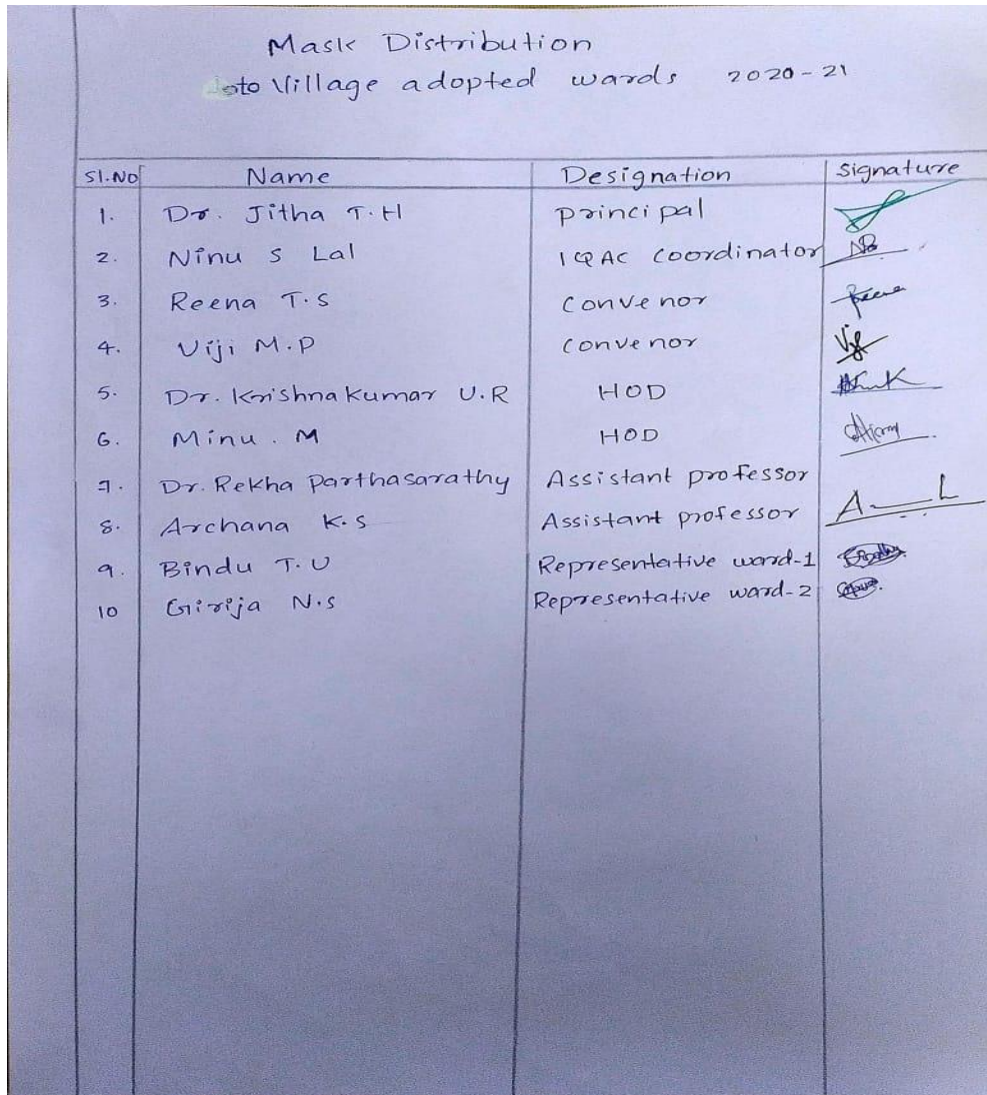 Mask Distribution
to Village adopted wards 2020-21
Sl.No Name Designation Signature
1. Dr. Jitha T.H principal
2. Ninu S Lal IQAC Coordinator
3. Reena T.S Convenor Reena
4. Viji M.P Convenor Viji
5. Dr. Krishnakumar U.R HOD
6. Minu. M HOD
7. Dr. Rekha parthasarathy Assistant professor
8. Archana K.S Assistant professor
9. Bindu T.U Representative ward-1
10 Girija N.S Representative ward-2